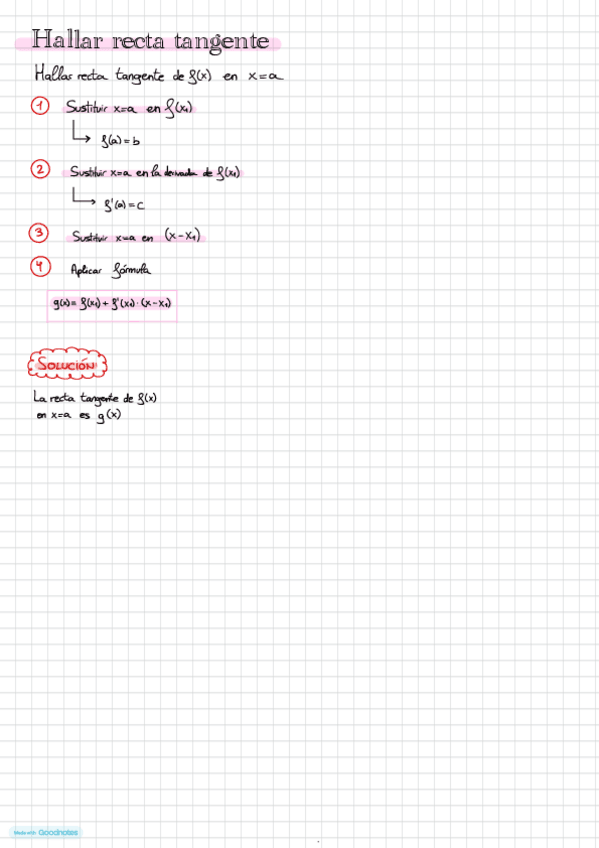 Hallar recta tangente
Hallar recta tangente de f(x) en x=a
1 Sustituir x=a en f(x₁)
f(a)=b
2 Sustituir x=a en la derivada de f(x₁)
f'(a)=c
3 Sustituir x=a en (x-x₁)
4 Aplicar fórmula
g(x)= f(x₁) + f'(x₁)·(x-x₁)
SOLUCIÓN
La recta tangente de f(x)
en x=a es g(x)
Made with Goodnotes